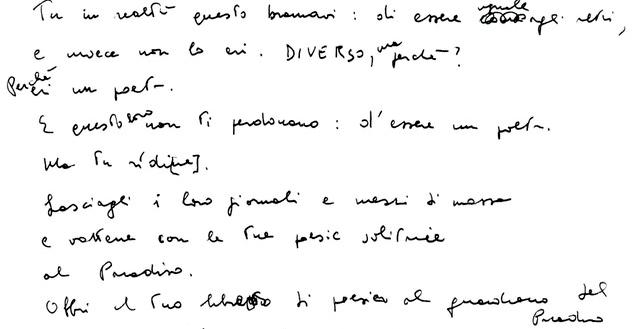 Tu in realtà questo bramavi: di essere uguale agli altri,
e invece non lo eri. DIVERSO, ma perché?
Perché eri un poeta.
E questo loro non ti perdonano: d'essere un poeta.
Ma tu ridi[ne].
Lasciagli i loro giornali e mezzi di massa
e vattene con le tue poesie solitarie
al Paradiso.
Offri il tuo libro di poesia al guardiano del
Paradiso